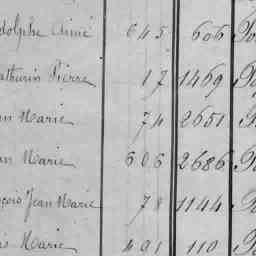 dolphe Aimé 645 606
athurin Pierre 17 1469
Marie 74 2651
Marie 606 2686
çois Jean Marie 78 1144
Marie 491 110